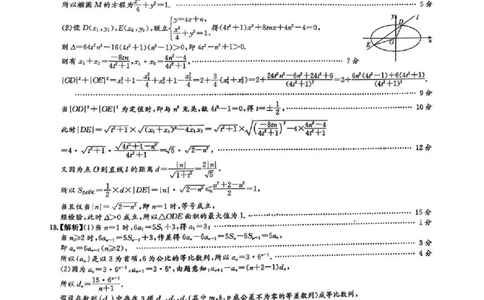 所以椭圆M的方程为x²/4+y²=1. 5分
(2)设D(x₁,y₁),E(x₂,y₂),联立{y=tx+n, x²/4+y²=1, 得(4t²+1)x²+8tnx+4n²-4=0,
则Δ=64t²n²-16(4t²+1)(n²-1)>0,即4t²-n²+1>0.
则有x₁+x₂=-8tn/(4t²+1),x₁·x₂=(4n²-4)/(4t²+1), 7分
|OD|²+|OE|²=x₁²+1-x₁²/4+x₂²+1-x₂²/4=2+3/4(x₁²+x₂²)=2+(24t²n²-6n²+24t²+6)/(4t²+1)²=2+(6n²(4t²-1)+6(4t²+1))/(4t²+1)²,
9分
当|OD|²+|OE|²为定值时,即与n²无关,故4t²-1=0,得t=±1/2, 10分
此时|DE|=√(t²+1)×√((x₁+x₂)²-4x₁x₂)=√(t²+1)×√((-8tn/(4t²+1))²-4×(4n²-4)/(4t²+1))
=4·√(t²+1)·√(4t²+1-n²)/(4t²+1)=√5·√(2-n²), 12分
又因为点O到直线l的距离d=|n|/√(1+t²)=2|n|/√5,
所以S△ODE=1/2×d×|DE|=|n|·√(2-n²)≤(n²+2-n²)/2=1,
当且仅当|n|=√(2-n²),即n=±1时,等号成立,
经检验,此时Δ>0成立,所以△ODE面积的最大值为1. 15分
18.【解析】(1)当n=1时,6a₁=5S₁+3,得a₁=3; 1分
当n≥2时,6aₙ₋₁=5Sₙ₋₁+3,作差得6aₙ-6aₙ₋₁=5Sₙ-5Sₙ₋₁=5aₙ,
即aₙ=6aₙ₋₁(n≥2), 3分
所以{aₙ}是以3为首项,6为公比的等比数列,所以aₙ=3·6ⁿ⁻¹. 4分
(2)因为aₙ=3·6ⁿ⁻¹,aₙ₊₁=3·6ⁿ,由题意知:aₙ₊₁-aₙ=(n+2-1)dₙ,
所以dₙ=15·6ⁿ⁻¹/(n+1).